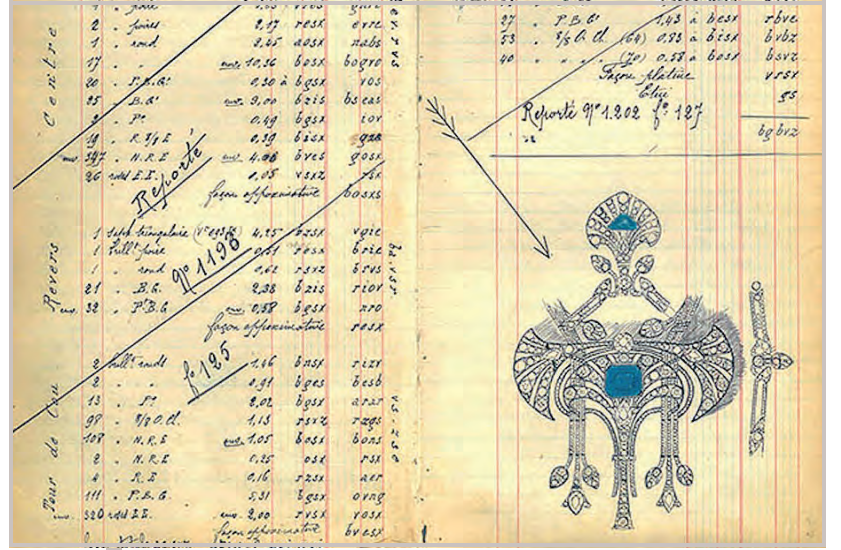 Centre
2 . poires 2,17 resx
1 . rond 2,45 aosx nabs
17 . . env. 10,36 bosx bogvo
20 . P.B.Gt 0,30 à bgsx vos
25 . B.Gt env. 9,00 bzis
2 . Pt 0,49 bgsx iov
19 . R 8/8 E 0,39 bisx
env. 347 . N.R.E env. 4,06 bves gosx
26 rosés E.E. 0,05 vsxz
façon approximative bosxs
Reporté
Nº 1196
fº 125
Revers
1 saph. triangulaire 4,25 bzsx vgie
1 brillt poire 0,51 resx brie
1 . rond 0,62 rsxz brvs
21 . B.G. 2,38 bzis riov
env. 32 . P.B.G env. 0,58 bgsx nro
façon approximative rosx
Tour de Cou
2 brillt ronds 1,46 bnsx rizv
2 . . 0,91 bges besb
13 . Pt 2,02 bgsx arar
98 . 8/8 O.Cl. 1,13 rsvz rzgs
108 . N.R.E env. 1,05 bosx bons
2 . N.R.E 0,25 osx rsx
4 . R.E 0,16 rzsx aer
111 . P.B.G. 5,31 bgsx ovng
env. 320 rosés E.E. env. 2,00 rvsx vosx
façon approximative bvesx
27 . P.B.Gt 1,43 à besx rbve
53 . 8/8 O.Cl. (64) 0,83 à bisx bvbz
40 . . . (70) 0,58 à bosx bsvz
Façon platine vrsx
Etui gs
Reporté Nº 1.202 fº 127
bgbvz